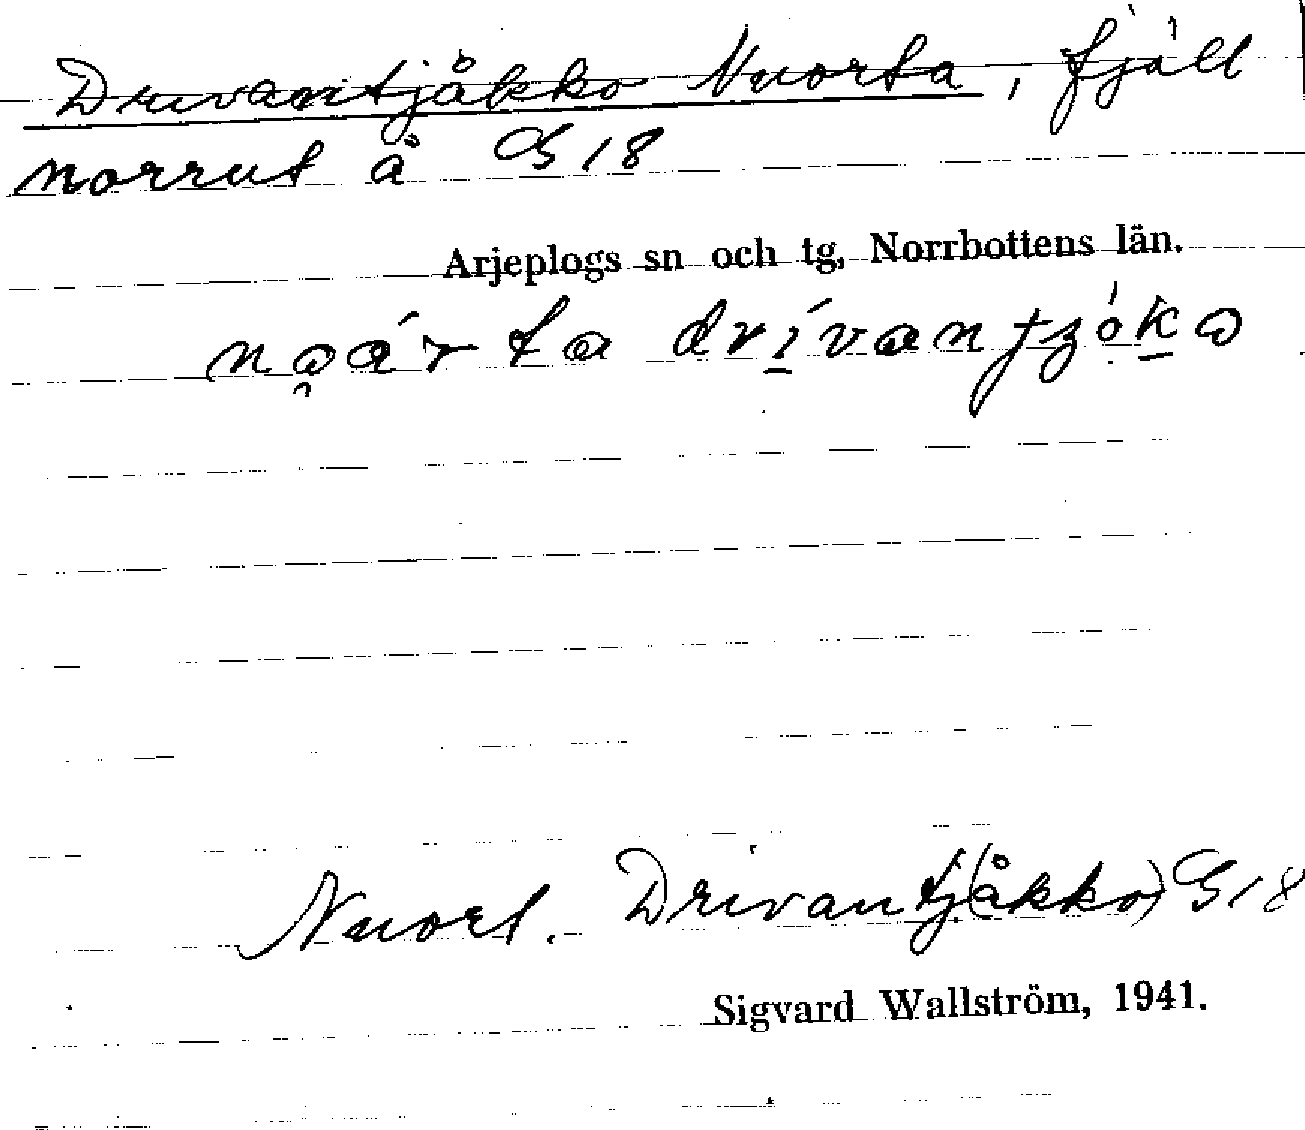 Drivantjåkko Nuorta, fjäll
norrut å G 18
Arjeplogs sn och tg, Norrbottens län.
Nuort. Drivantj(åkko) G 18
Sigvard Wallström, 1941.